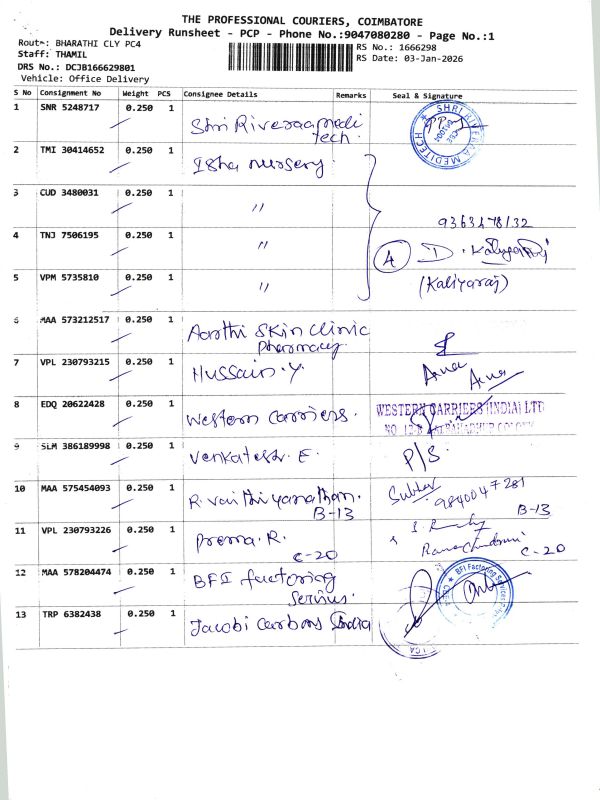 THE PROFESSIONAL COURIERS, COIMBATORE
Delivery Runsheet - PCP - Phone No.:9047080280 - Page No.:1
Route: BHARATHI CLY PC4
RS No.: 1666298
Staff: THAMIL
RS Date: 03-Jan-2026
DRS No.: DCJB166629801
Vehicle: Office Delivery
S No Consignment No Weight PCS Consignee Details Remarks Seal & Signature
1 SNR 5248717 0.250 1 Shri Riveraa medi tech.
SHRI RIVERAA MEDITECH
2 TMI 30414652 0.250 1 Isha nursery.
3 CUD 3480031 0.250 1 "
9363478132
4 TNJ 7506195 0.250 1 " 4 D.
5 VPM 5735810 0.250 1 " (Kaliyaraj)
6 MAA 573212517 0.250 1 Aarthi Skin Clinic
Pharmacy.
7 VPL 230793215 0.250 1 Hussain.Y.
8 EDQ 20622428 0.250 1 Western Carriers.
WESTERN CARRIERS (INDIA) LTD
9 SLM 386189998 0.250 1 Venkatesr. E. P/S.
10 MAA 575454093 0.250 1 R. Vaithiyanathan.
B-13
9840047281
B-13
11 VPL 230793226 0.250 1 Prema.R.
C-20
C-20
12 MAA 578204474 0.250 1 BFI factoring
Servius.
BFI Factoring Services
13 TRP 6382438 0.250 1 Jacobi Carbons India